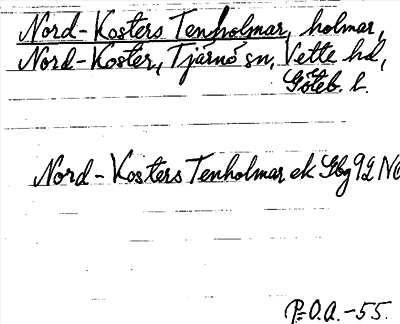 Nord-Kosters Tenholmar, holmar,
Nord-Koster, Tjärnö sn, Vette hd,
Göteb. l.
Nord-Kosters Tenholmar ek Gbg 92 NO
P-O.A.-55.